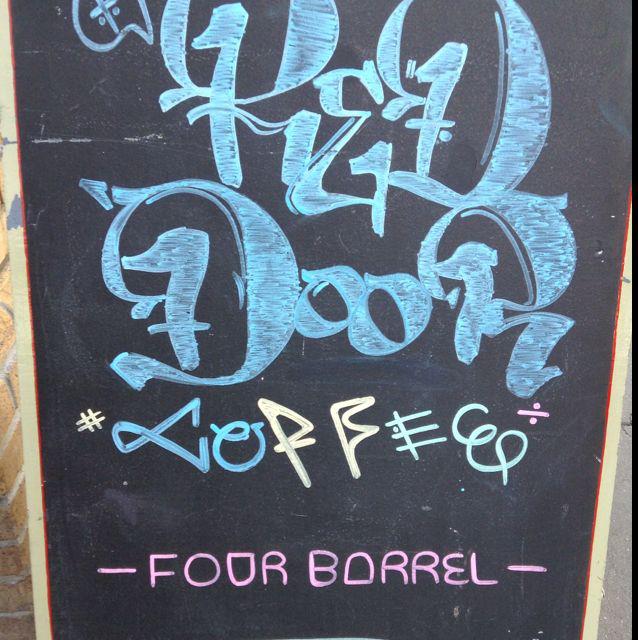 RED
DOOR
#COFFEE÷
— FOUR BARREL —